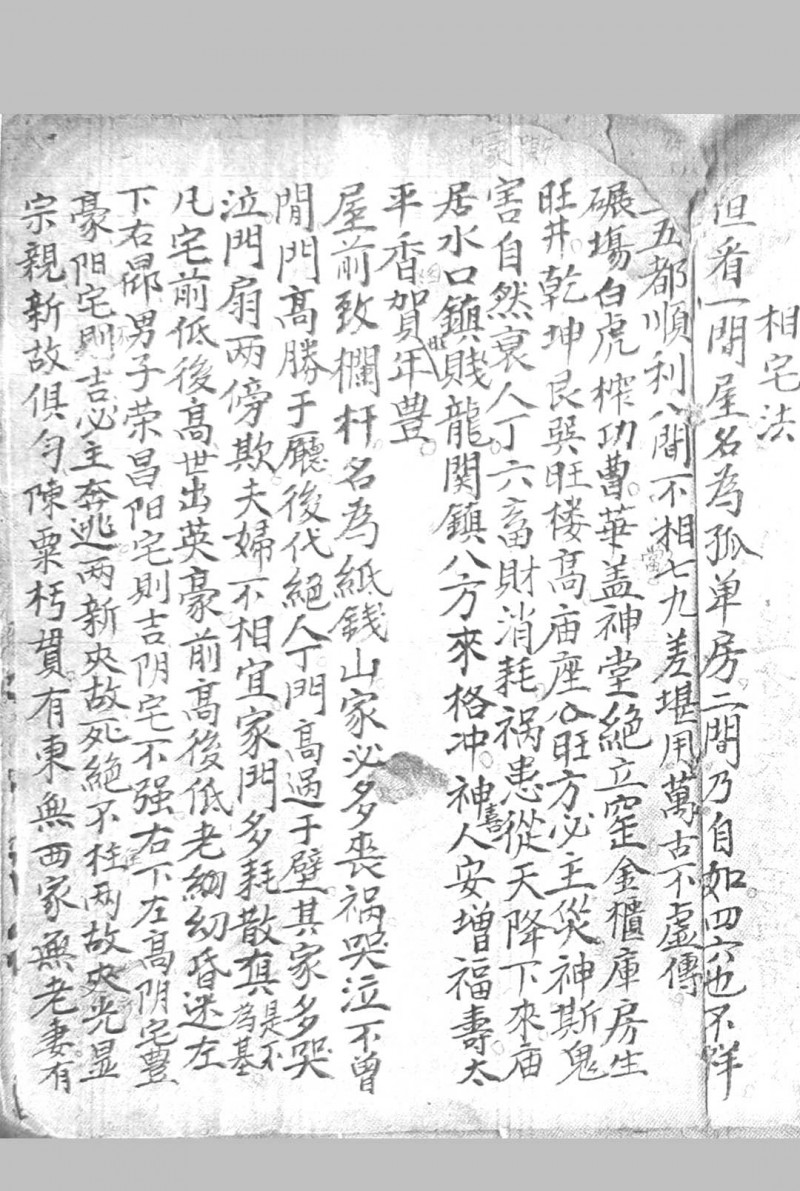 相宅法
但看一間屋名為孤单房二間乃自如四六也不祥
一五都順利八間不相當七九差堪用萬古不虚傳
碾場白虎榨功曹華盖神堂絕立窑金櫃庫房生
旺井乾坤艮巽旺楼髙庙座公旺方必主災神斯鬼
害自然衰人丁六畜財消耗祸患從天降下來庙
居水口鎮賤龍関鎮八方來格冲神喜人安增福壽太
平香賀年豊
屋前致欄杆名為紙錢山家必多丧祸哭泣不曾
閒門髙勝于廳後代絕人丁門髙過于壁其家多哭
泣門扇两傍欺夫婦不相宜家門多耗散真是不為基
凡宅前低後髙世出英豪前髙後低老細幼昏迷左
下右昻男子荣昌阳宅則吉阴宅不强右下左高阴宅豊
豪阳宅則吉必主奔逃两新夾故死絕不住两故夾光显
宗親新故俱匀陳粟朽貫有東無西家無老妻有